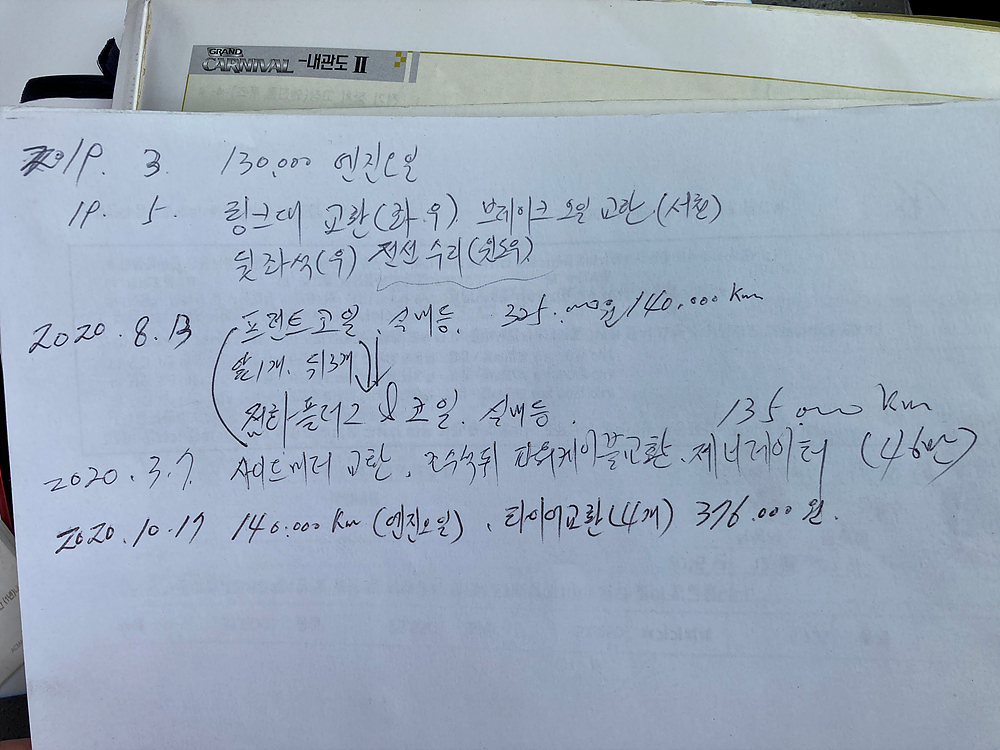 GRAND
CARNIVAL -내관도 II
2019. 3 130,000 엔진오일
19. 5. 링크대 교환(좌.우) 브레이크 오일 교환.(서환)
뒷좌석(우) 전선 수리(윈도우)
2020.8.13 프런트코일. 실내등. 325.000원/140.000 Km
앞1개. 뒤3개
점화플러그 & 코일. 실내등.
135.000 Km
2020.3.7. 사이드미러 교환. 조수석뒤 파워케이블교환. 제너레이터 (46만)
2020.10.17 140.000 Km (엔진오일). 타이어교환(4개) 376.000원.